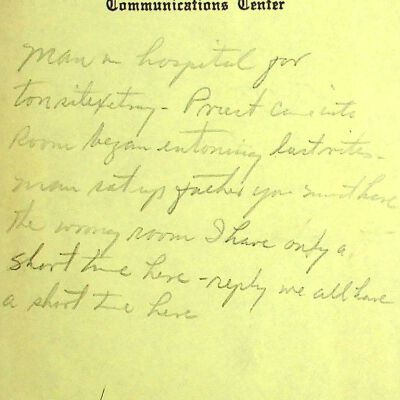 Communications Center
Man in hospital for
tonsiletetmy - Priest came into
Room began entoning last rites -
Man sat up father you must have
the wrong room I have only a
short time here - reply we all have
a short time here